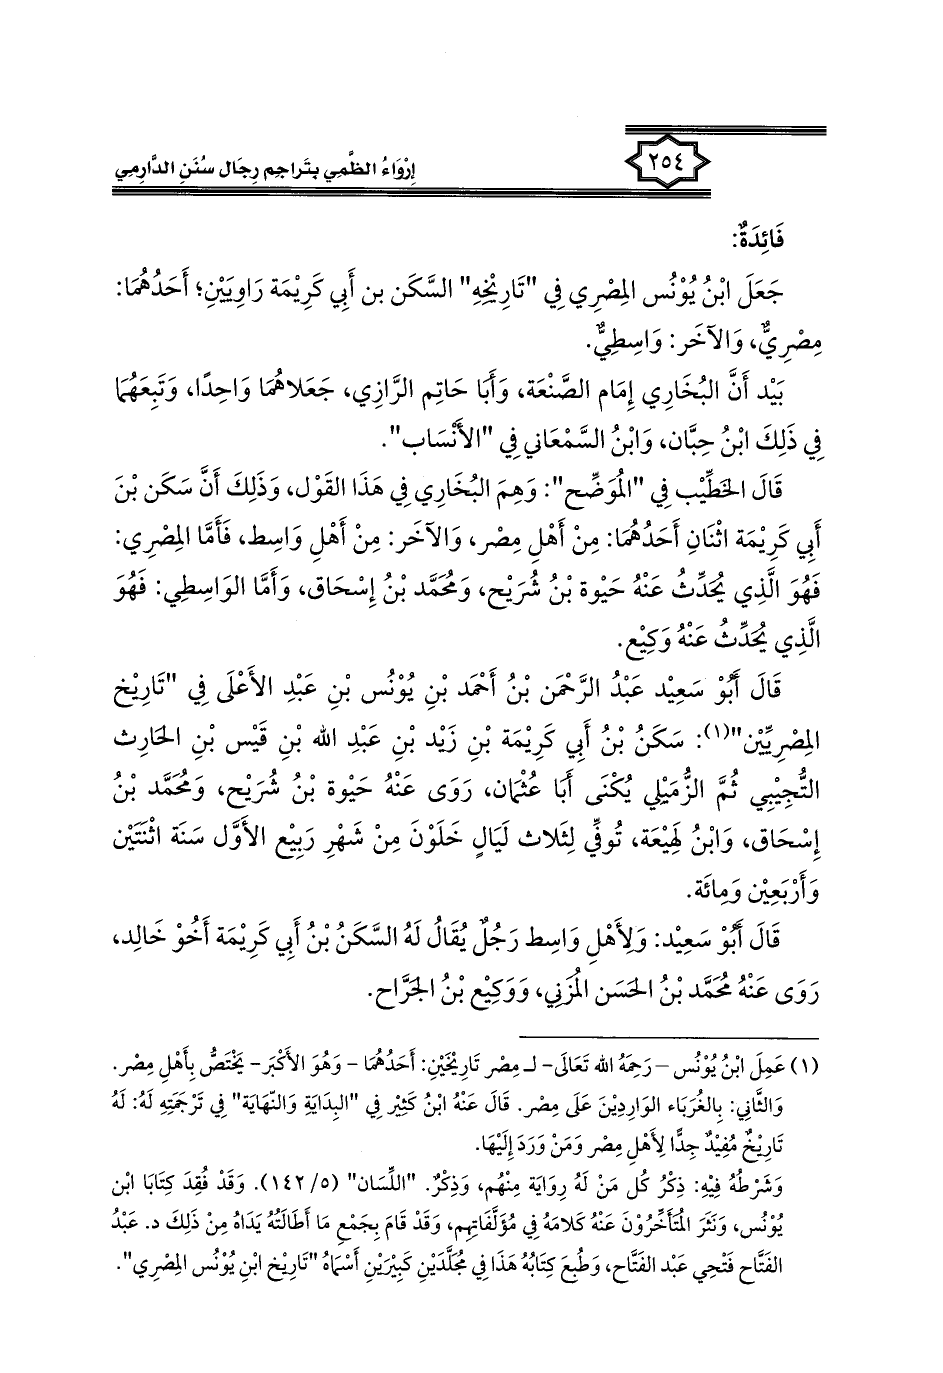 ٢٥٤
إِرْوَاءُ الظَّمِي بتَراجم رِجَال سُنَنِ الدَّارِمِي
فَائِدَةٌ:
جَعَلَ ابْنُ يُوْنُس المِصْرِي فِي "تَارِيْخِهِ" السَّكَن بن أَبي كَرِيْمَة رَاوِيَيْنِ؛ أَحَدُهُمَا:
مِصْرِيٌّ، وَالآخَر: وَاسِطِيٌّ.
بَيْد أَنَّ البُخَارِي إِمَام الصَّنْعَة، وَأَبَا حَاتِم الرَّازِي، جَعَلاهُمَا وَاحِدًا، وَتَبِعَهُمَا
فِي ذَلِكَ ابْنُ حِبَّان، وَابْنُ السَّمْعَاني فِي "الأَنْسَاب".
قَالَ الخَطِّيْب فِي "المُوَضِّح": وَهِمَ البُخَارِي فِي هَذَا القَوْل، وَذَلِكَ أَنَّ سَكَن بْنَ
أَبي كَرِيْمَة اثْنَانِ أَحَدُهُمَا: مِنْ أَهْلِ مِصْر، وَالآخَر: مِنْ أَهْلِ وَاسِط، فَأَمَّا المِصْرِي:
فَهُوَ الَّذِي يُحَدِّثُ عَنْهُ حَيْوة بْنُ شُرَيْح، وَمُحَمَّد بْنُ إِسْحَاق، وَأَمَّا الوَاسِطِي: فَهُوَ
الَّذِي يُحَدِّثُ عَنْهُ وَكِيْع.
قَالَ أَبُوْ سَعِيْد عَبْدُ الرَّحْمَن بْنُ أَحْمَد بْنِ يُوْنُس بْنِ عَبْدِ الأَعْلَى فِي "تَارِيْخ
المِصْرِيِّيْن"(١): سَكَنُ بْنُ أَبي كَرِيْمَة بْنِ زَيْد بْنِ عَبْدِ الله بْنِ قَيْس بْنِ الحَارِث
التُّجِيْبِي ثُمَّ الزُّمَيْلِي يُكْنَى أَبَا عُثْمَان، رَوَى عَنْهُ حَيْوة بْنُ شُرَيْح، وَمُحَمَّد بْنُ
إِسْحَاق، وَابْنُ لَهِيْعَة، تُوفِّي لِثَلاث لَيَالٍ خَلَوْنَ مِنْ شَهْرِ رَبِيْع الأَوَّل سَنَة اثْنَتَيْنِ
وَأَرْبَعِيْن وَمِائَة.
قَالَ أَبُوْ سَعِيْد: وَلِأَهْلِ وَاسِط رَجُلٌ يُقَالُ لَهُ السَّكَنُ بْنُ أَبي كَرِيْمَة أَخُوْ خَالِد،
رَوَى عَنْهُ مُحَمَّد بْنُ الحَسَن المُزَنِي، وَوَكِيْع بْنُ الجَرَّاح.
(١) عَمِلَ ابْنُ يُوْنُس –رَحِمَهُ الله تَعَالَى– لـ مِصْر تَارِيْخَيْنِ: أَحَدُهُمَا –وَهُوَ الأَكْبَر– يَخْتَصُّ بِأَهْلِ مِصْر.
وَالثَّانِي: بِالغُرَبَاء الوَارِدِيْنَ عَلَى مِصْر. قَالَ عَنْهُ ابْنُ كَثِيْر فِي "البِدَايَة وَالنِّهَايَة" فِي تَرْجَمَتِهِ لَهُ: لَهُ
تَارِيْخٌ مُفِيْدٌ جِدًّا لِأَهْلِ مِصْر وَمَنْ وَرَدَ إِلَيْهَا.
وَشَرْطُهُ فِيْهِ: ذِكْرُ كُل مَنْ لَهُ رِوَايَة مِنْهُم، وَذِكْرٌ. "اللِّسَان" (٥/ ١٤٢). وَقَدْ فُقِدَ كِتَابَا ابْنِ
يُوْنُس، وَنَثَرَ المُتَأَخِّرُوْنَ عَنْهُ كَلامَهُ فِي مُؤَلَّفَاتِهِم، وَقَدْ قَامَ بِجَمْعِ مَا أَطَالَتْهُ يَدَاهُ مِنْ ذَلِكَ د. عَبْدُ
الفَتَّاح فَتْحِي عَبْد الفَتَّاح، وَطُبِعَ كِتَابُهُ هَذَا فِي مُجَلَّدَيْنِ كَبِيْرَيْنِ أَسْمَاهُ "تَارِيْخ ابْنِ يُوْنُس المِصْرِي".